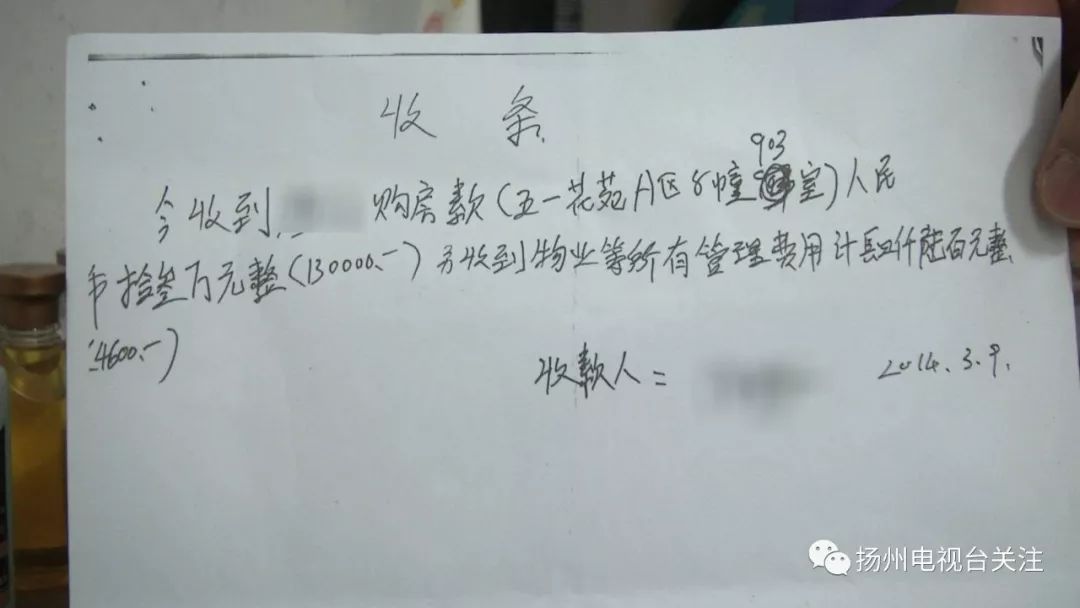 收 条
903
今收到 购房款(五一花苑A区8幢 室)人民
币拾叁万元整(130000.-)另收到物业等所有管理费用计 仟陆百元整
4600.-)
收款人: 2014.3.9.
扬州电视台关注